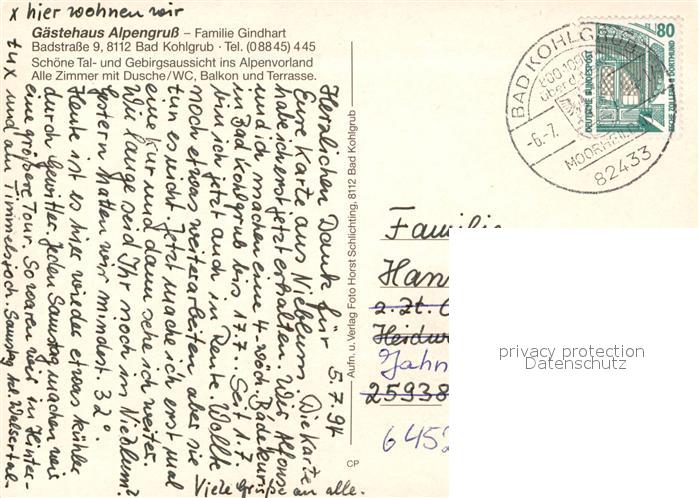 x hier wohnen wir
Gästehaus Alpengruß – Familie Gindhart
Badstraße 9, 8112 Bad Kohlgrub · Tel. (08845) 445
Schöne Tal- und Gebirgsaussicht ins Alpenvorland
Alle Zimmer mit Dusche/WC, Balkon und Terrasse.
5.7.94
Herzlichen Dank für
Eure Karte aus Nieblum. Die Karte
habe ich erst jetzt erhalten. Wir, Alfons
und ich machen eine 4 wöch. Badekur
in Bad Kohlgrub bis 17.7.. Seit 1.7.
bin ich jetzt auch in Rente. Wollte
noch etwas weiterarbeiten aber sie
tun es nicht. Jetzt mache ich erst mal
eine Kur und dann sehe ich weiter.
Wie lange seid Ihr noch in Nieblum?
Gestern hatten wir mindest. 32°.
Heute ist es hier wieder etwas kühler
durch Gewitter. Jeden Samstag machen wir
eine größere Tour. So waren wir in Hinter-
tux und am Timmelsjoch. Samstag
Viele Grüße an alle.
Aufn. u. Verlag Foto Horst Schlichting, 8112 Bad Kohlgrub
CP
BAD KOHLGRUB
-6.-7.
MOORHEIL
82433
80
DEUTSCHE BUNDESPOST
ZECHE ZOLLERN II DORTMUND
Familie
Han
z. Zt.
Jahn
25938
6452
privacy protection
Datenschutz